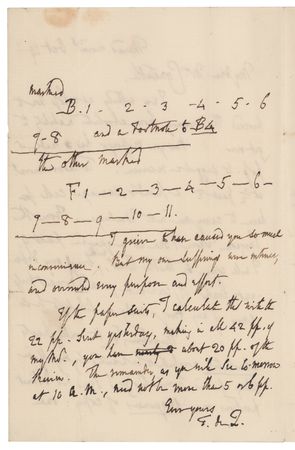 marked
B. 1 - 2 - 3 - 4 - 5 - 6
9 - 8 and a Footnote to B4
the other marked
F 1 — 2 — 3 — 4 — 5 — 6 -
9 — 8 — 9 — 10 — 11.
I grieve to have caused you so much
inconvenience. But my own sufferings were intense,
and overruled every purpose and effort.
If the paper suits, I calculate that with the
22 pp. sent yesterday, making in all 42 pp. of
my MS., you have about 20 pp. of the
Review. The remainder, as you will see to-morrow
at 10 A.M., need not be more than 5 or 6 pp.
Ever yours
T. de Q.